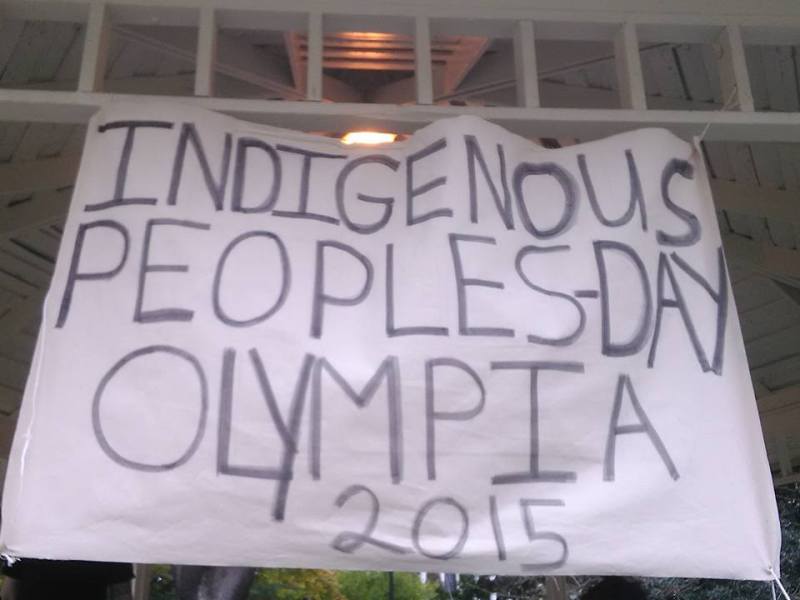 INDIGENOUS
PEOPLES-DAY
OLYMPIA
2015